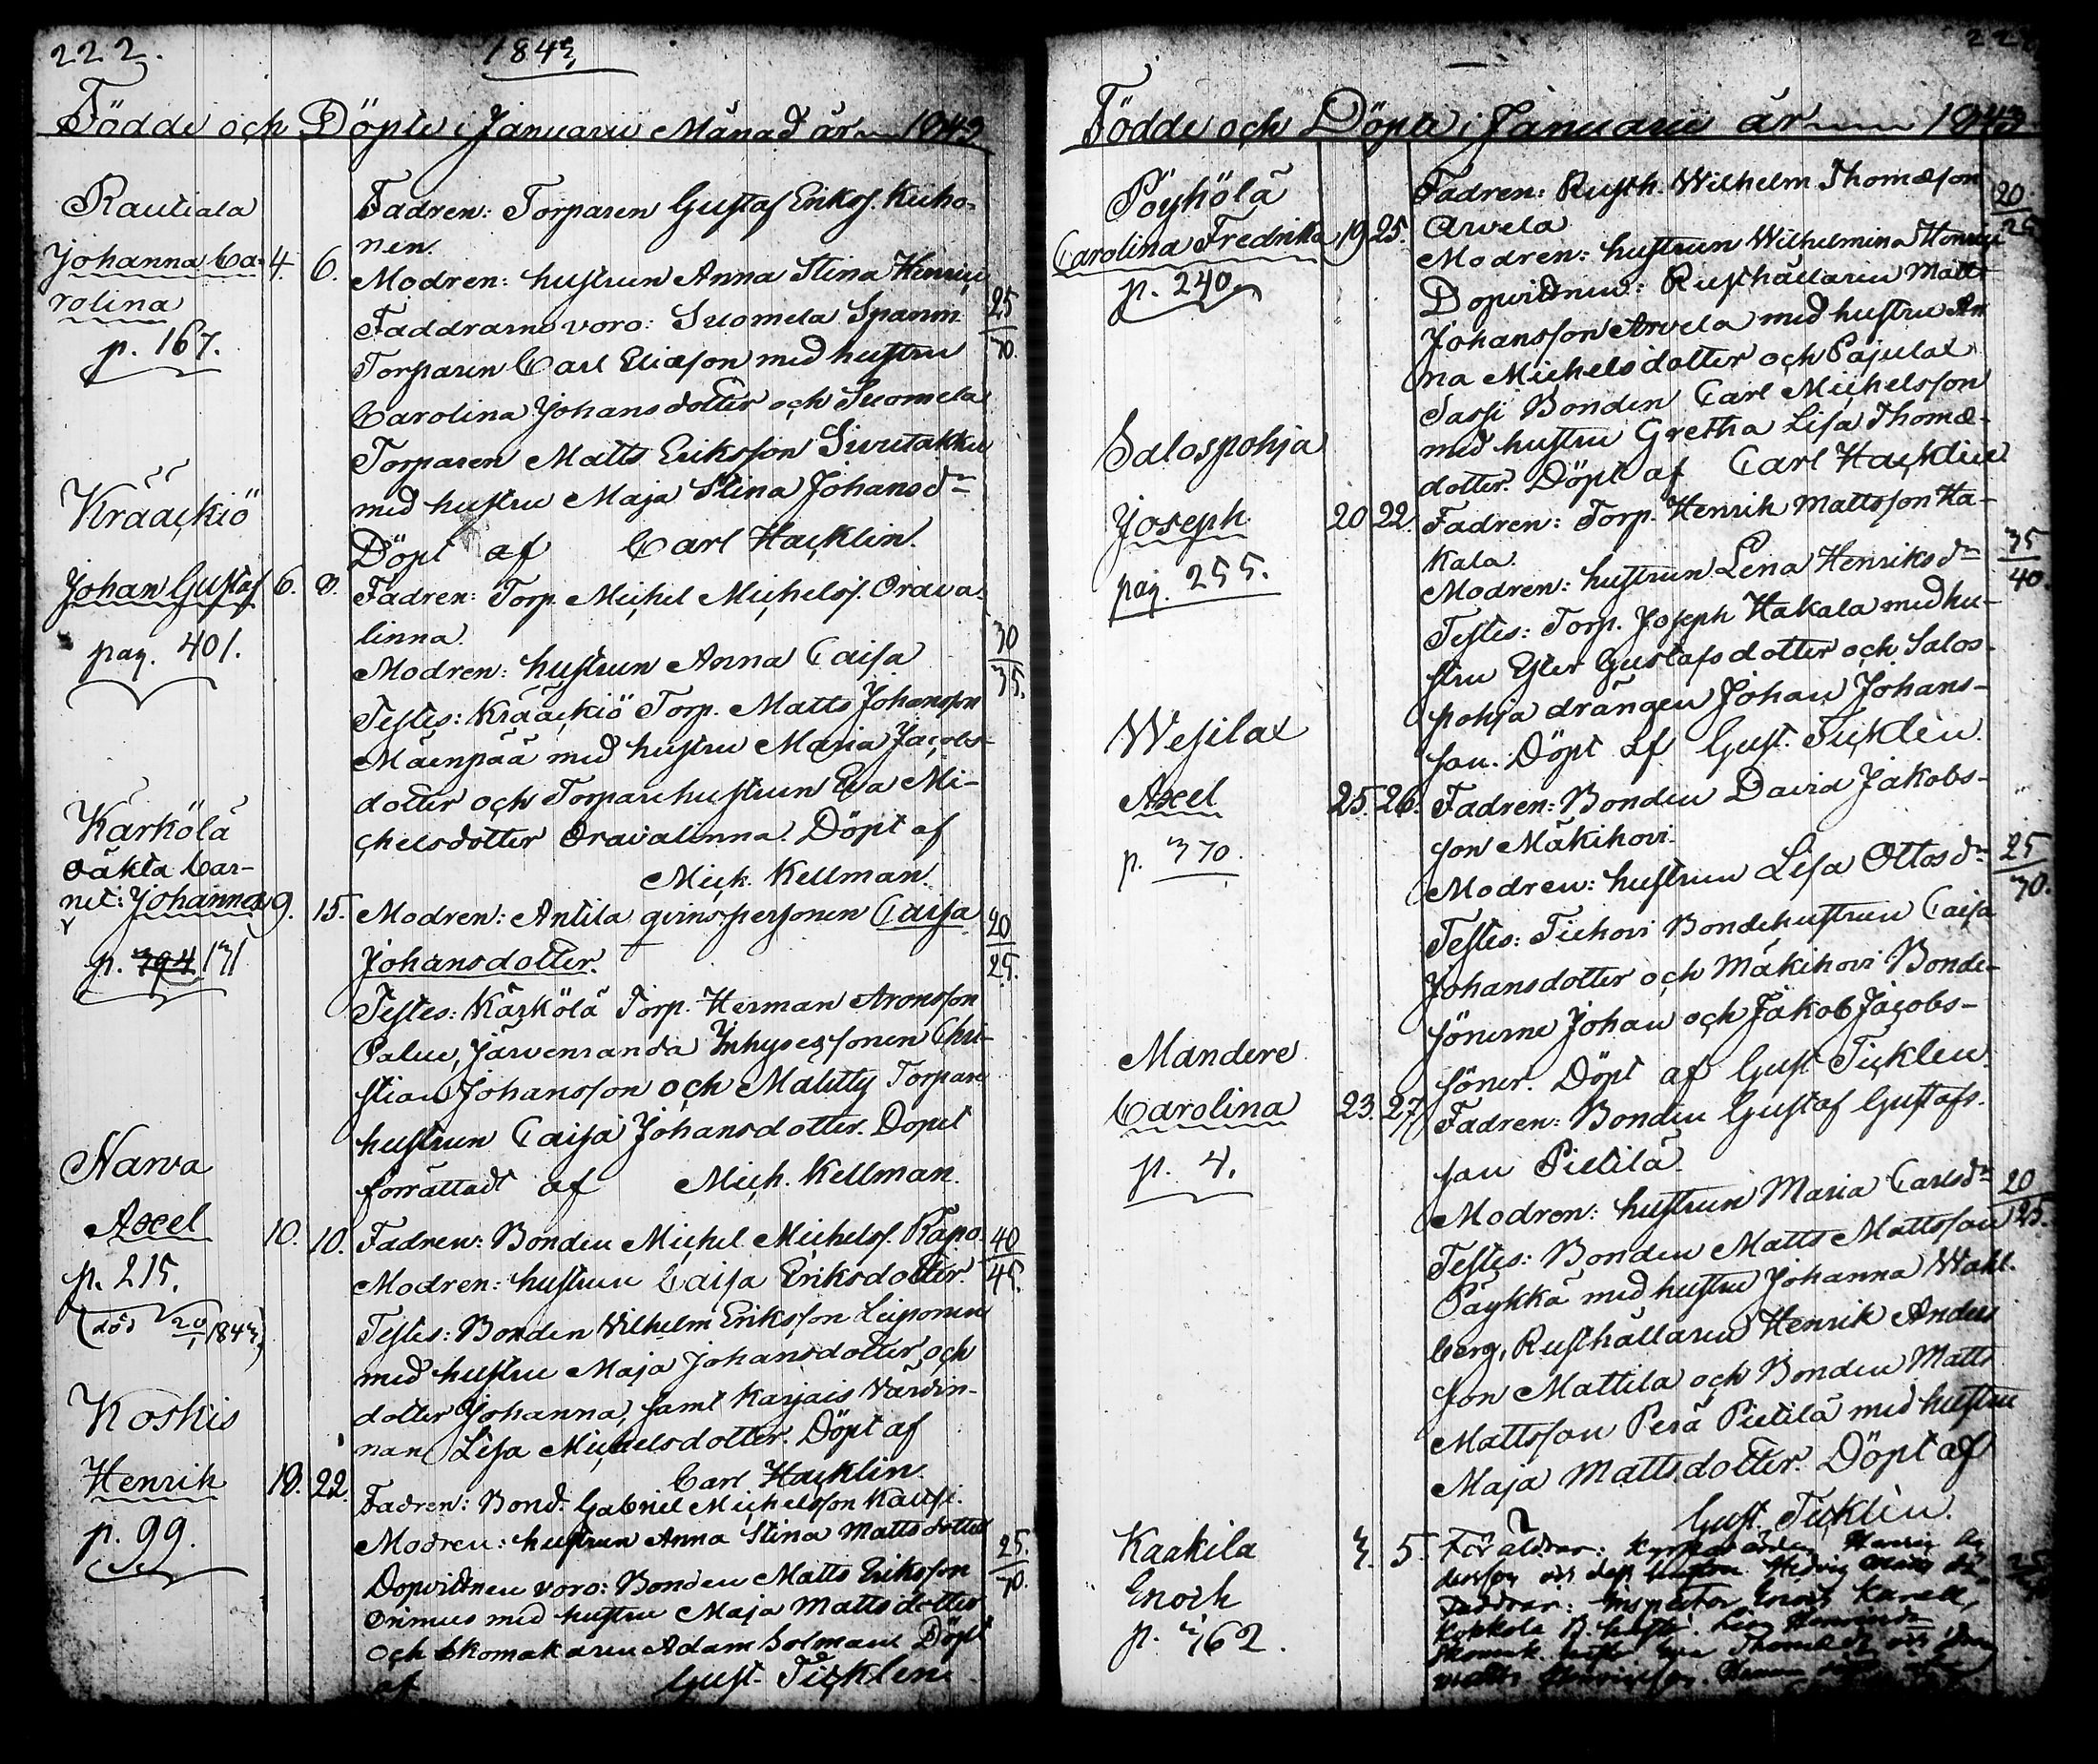 222.
1843
Födde och Döpte i Januarii Månad år 1843
Rautiala
Johanna Ca-
rolina
p. 167.
4. 6.
Fadren: Torparen Gustaf Eriks. Kuho-
nen.
Modren: hustrun Anna Stina Henric
25/30.
Faddrarne voro: Suomela Spanm.
Torparen Carl Eliasson med hustru
Carolina Johansdotter och Suomela
Torparen Matts Eriksson Sivutakku
med hustru Maja Stina Johansdr
Döpt af Carl Hacklin.
Krääckiö
Johan Gustaf
pag. 401.
6. 8.
Fadren: Torp. Michel Michelss. Orava-
linna.
Modren: hustrun Anna Caisa
30/35.
Testes: Krääckiö Torp. Matts Johansson
Mäenpää med hustru Maria Jacobs-
dotter och Torparehustrun Eva Mi-
chelsdotter Oravalinna. Döpt af
Mich. Kellman.
Kärkölä
oäkta bar-
net: Johanna
p. 394 131
9. 15.
Modren: Antila qvinspersonen Caisa
20/25.
Johansdotter.
Testes: Kärkölä Torp. Herman Aronsson
Palu, Järvenranda Inhysessonen Chri-
stian Johansson och Malitty Torpare
hustrun Caisa Johansdotter. Dopet
förrättadt af Mich. Kellman.
Narva
Axel
p. 215.
(död 1843)
10. 10.
Fadren: Bonden Michel Michelss. Rapo.
40/45.
Modren: hustrun Caisa Eriksdotter.
Testes: Bonden Vilhelm Eriksson Leiponen
med hustru Maja Johansdotter och
dotter Johanna, samt Karjais Värdin-
nan Lisa Michelsdotter. Döpt af
Carl Hacklin.
Koskis
Henrik
p. 99.
18. 22.
Fadren: Bond. Gabriel Michelsson Kausi.
Modren: hustrun Anna Stina Mattsdotter
25./30.
Dopvittnen voro: Bonden Matts Eriksson
Onimus med hustru Maja Mattsdotter
och Skomakaren Adam Holman. Döpt
af Gust. Ticklén.
Födde och Döpte i Januarii år 1843
Pöyhölä
Carolina Fredrika
p. 240.
19 25.
Fadren: Rusth. Wilhelm Thomasson
Arvela
20/25
Modren: hustrun Wilhelmina Henric
Dopvittnen: Rusthållaren Matts
Johansson Arvela med hustru An
na Michelsdotter och Pajulax
Sassi Bonden Carl Michelsson
med hustru Gretha Lisa Thomæ-
dotter. Döpt af Carl Hacklin
Salospohja
Joseph
pag. 255.
20 22.
Fadren: Torp. Henrik Mattsson Ha-
kala.
35/40.
Modren: hustrun Lena Henriksdr
Testes: Torp. Joseph Hakala med hu-
stru Ester Gustafsdotter och Salos-
pohja drängen Johan Johans-
son. Döpt af Gust. Ticklén.
Wesilax
Axel
p. 370.
25. 26.
Fadren: Bonden David Jakobs-
son Mäkihovi.
Modren: hustrun Lisa Ottosdr
25/30.
Testes: Tiehovi Bondehustrun Caisa
Johansdotter och Mäkihovi Bonde-
sönerne Johan och Jakob Jacobs-
söner. Döpt af Gust Ticklén.
Mandere
Carolina
p. 4.
23. 27.
Fadren: Bonden Gustaf Gustafs-
son Pietilä
Modren: hustrun Maria Carlsdr
20/25.
Testes: Bonden Matts Mattsson
Päykkä med hustru Johanna Wahl-
berg, Rusthållaren Henrik Anders
son Mattila och Bonden Matts
Mattsson Perä Pietilä med hustru
Maja Mattsdotter. Döpt af
Gust. Ticklén.
Kaakila
Enoch
p. 162.
3. 5.
Föräldrar: Kyrkovärden Henric An
dersson och dess hustru Hedvig
Faddrar: Inspector Enoch Karell,
Kokkola
Matts Henricsson.